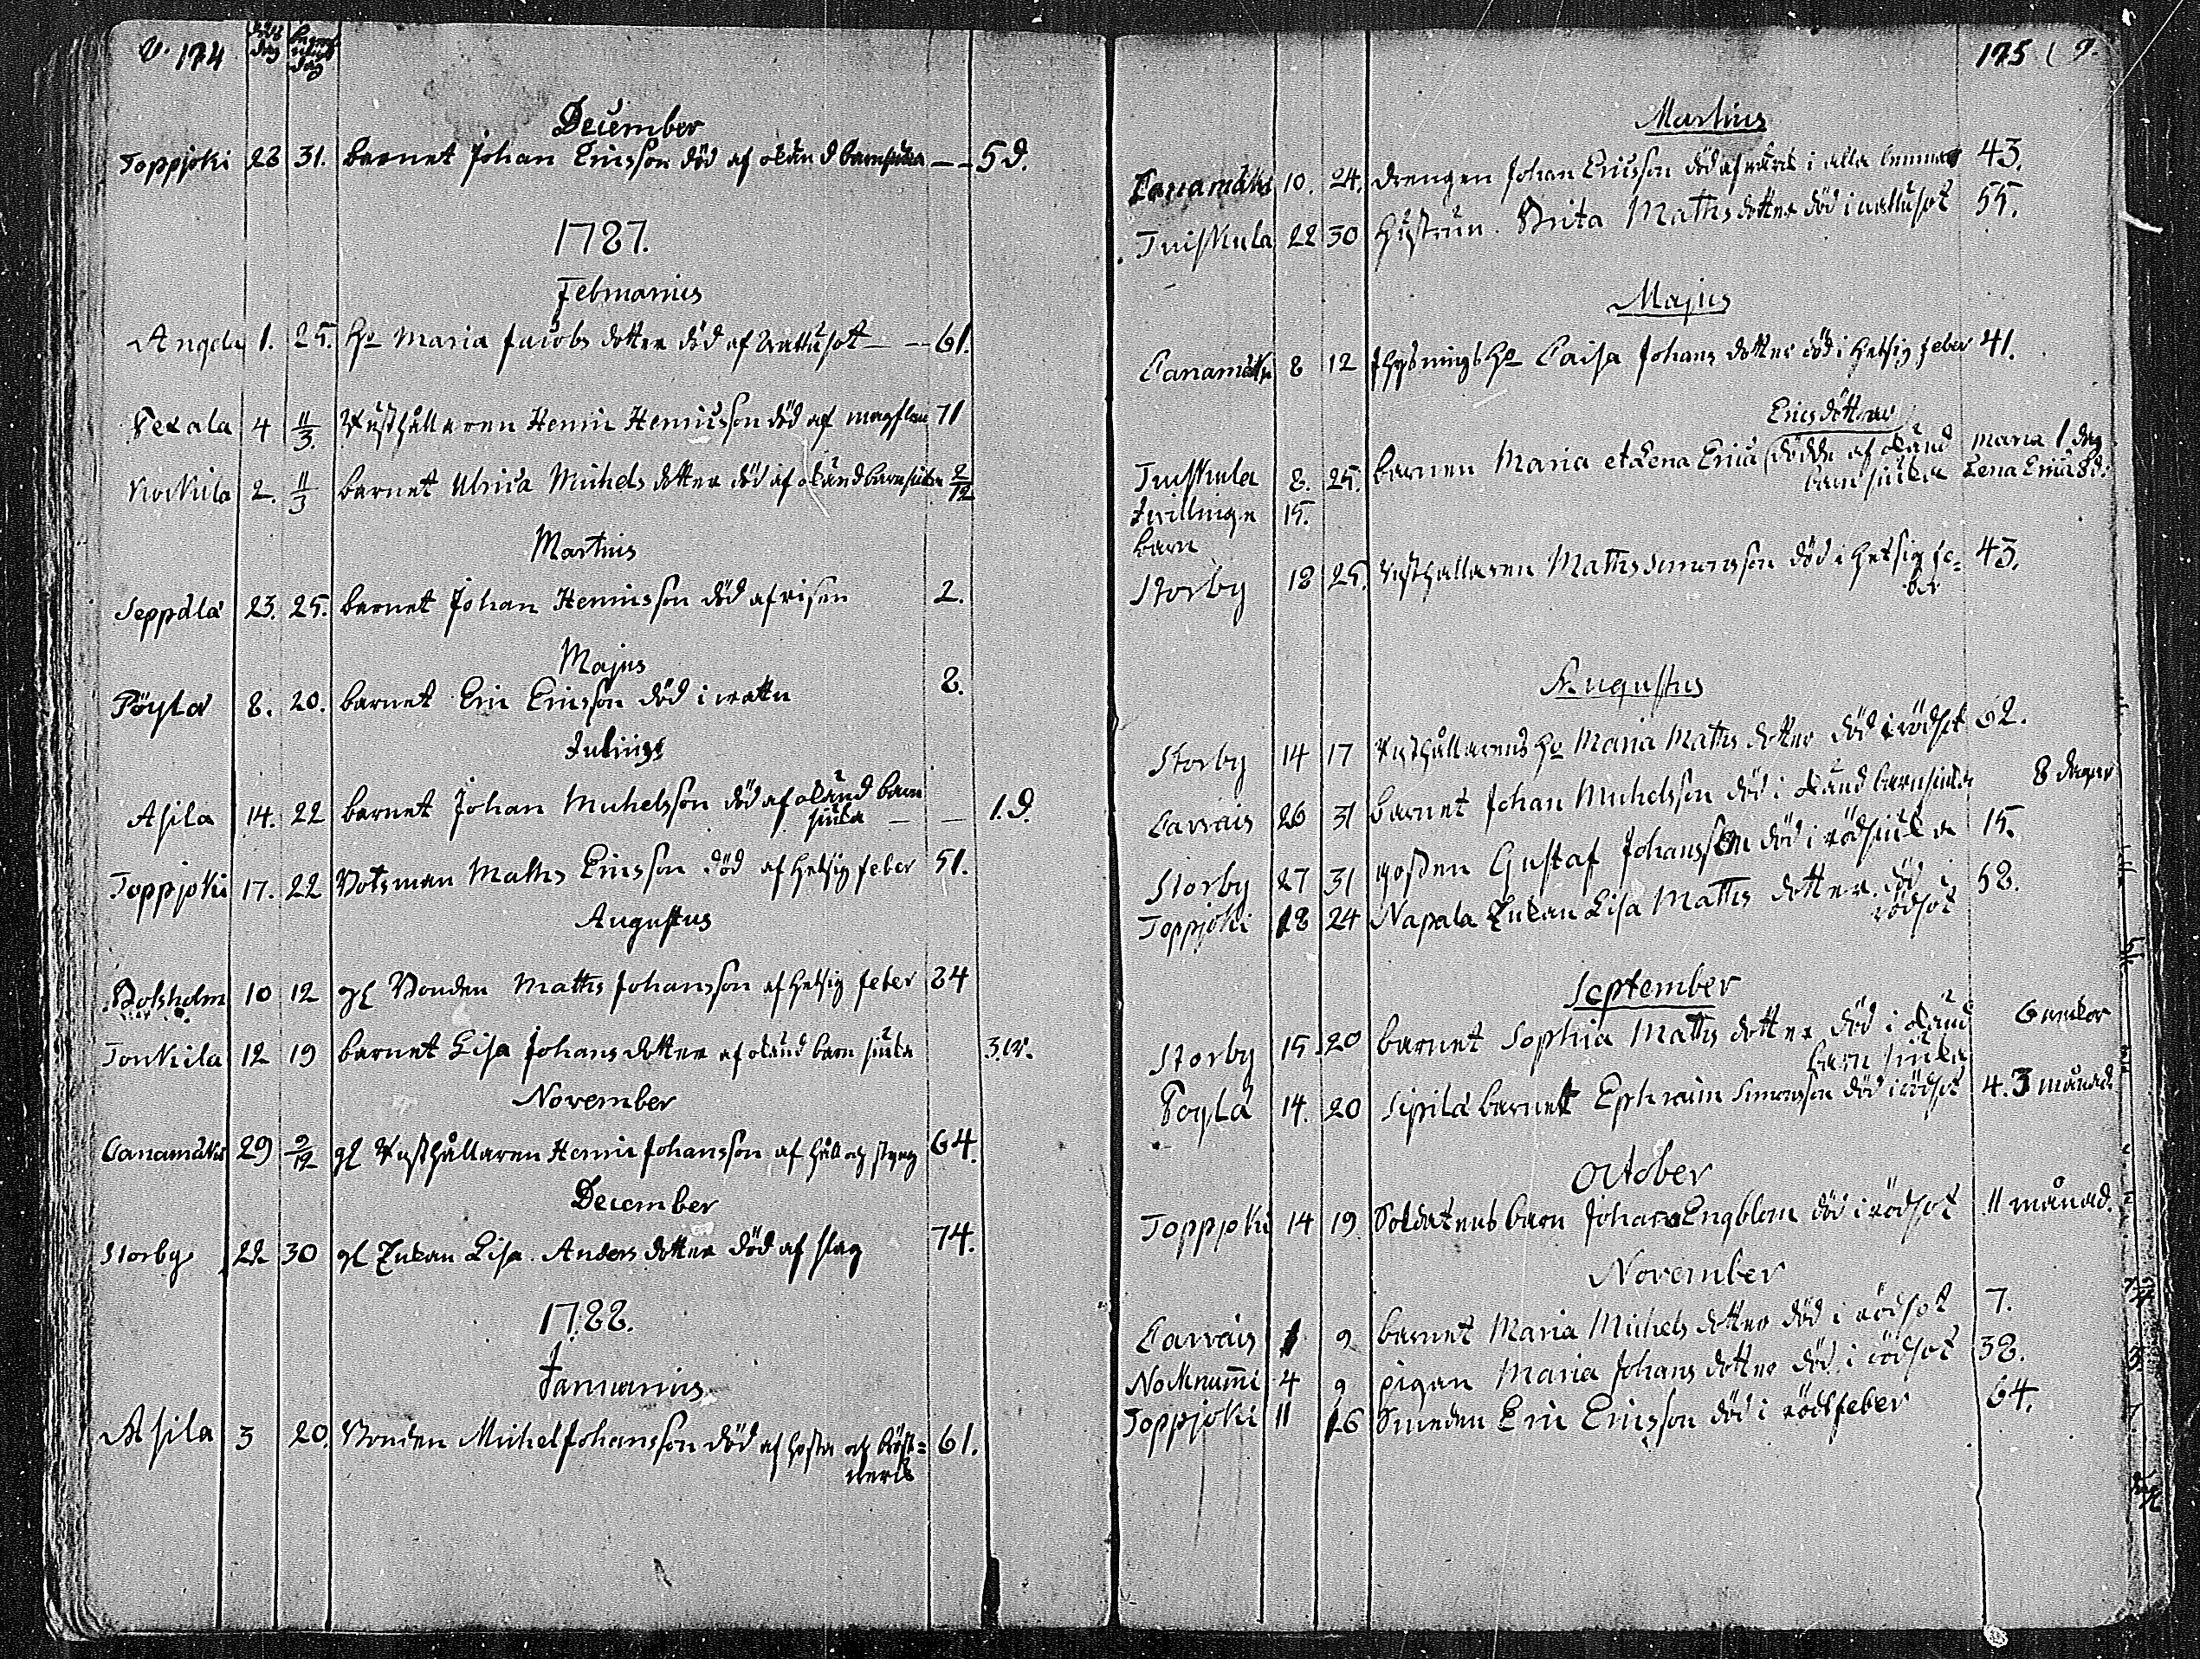 174
död dag
begraf dag
December
Toppjoki 28 31. barnet Johan Ericsson död af okänd barnsiuka — — 5 d.
1787.
Februarius
Angela 1. 25. H:o Maria Jacobs dotter död af Wattusot — — 61.
4 11/3. Rusthållaren Henric Henricsson död af 71
2. 11/3 barnet Ulrica Michels dotter död af okänd barnsiuka 2/12
Martius
Seppälä 23. 25. barnet Johan Henricsson död af risen 2.
Majus
Pöylä 8. 20. barnet Eric Ericsson död i wattn 8.
Julius
Asila 14. 22 barnet Johan Michelsson död af okänd barn
siuka — — 1. d.
Toppjoki 17. 22 Botsman Matths Ericsson död af hetsig feber 51.
Augustus
10 12 gl Bonden Matths Johansson af hetsig feber 84
Tonkila 12 19 barnet Lisa Johans dotter af okänd barn siuka 3.w.
November
Canamäki 29 2/12 gl Rusthållaren Henric Johansson af håll och styng 64.
December
Storby 22 30 gl Enkan Lisa Anders dotter död af slag 74.
1788.
Januarius
Asila 3 20. Bonden Michel Johansson död af hosta och bröst=
werck 61.
175
Martius
Canamäki 10. 24. drengen Johan Ericsson död af wärk i alla lemmar 43.
Tuiskula 22 30 Hustrun Brita Matths dotter död i wattusot 55.
Majus
Canamäki 8 12 H:o Caisa Johans dotter död i hetsig feber 41.
Erics döttrar
Tuiskula 8. 25. barnen Maria et Lena Erica dödde af okänd Maria 1 dag
barnsiuka Lena Erica 8 d.
Twillinge 15.
barn
Storby 18 25. Rusthållaren Matths Simonsson död i hetsig fe=
ber 43.
Augustus
Storby 14 17 Rusthållarens H:o Maria Matths dotter död i rödsot 62.
Carrais 26 31 barnet Johan Michelsson död i okänd barnsiuka 8 dagar
Storby 27 31 gossen Gustaf Johansson död i rödsiuka 15.
Toppjoki 18 24 Napala Enkan Lisa Matths dotter död i
rödsot 58.
September
Storby 15 20 barnet Sophia Matths dotter död i okänd
barn siuka 6 weckor
Pöylä 14. 20 Sipilä barnet Ephraim Simonsson död i rödsot 4. 3 månad
October
Toppjoki 14 19. Soldatens barn Johan Engblom död i rödsot 11 månad.
November
Carrais 1 9 barnet Maria Michels dotter död i rödsot 7.
Nokknummi 4 9 pigan Maria Johans dotter död i rödsot 38.
Toppjoki 11 16 Smeden Eric Ericsson död i rödfeber 64.